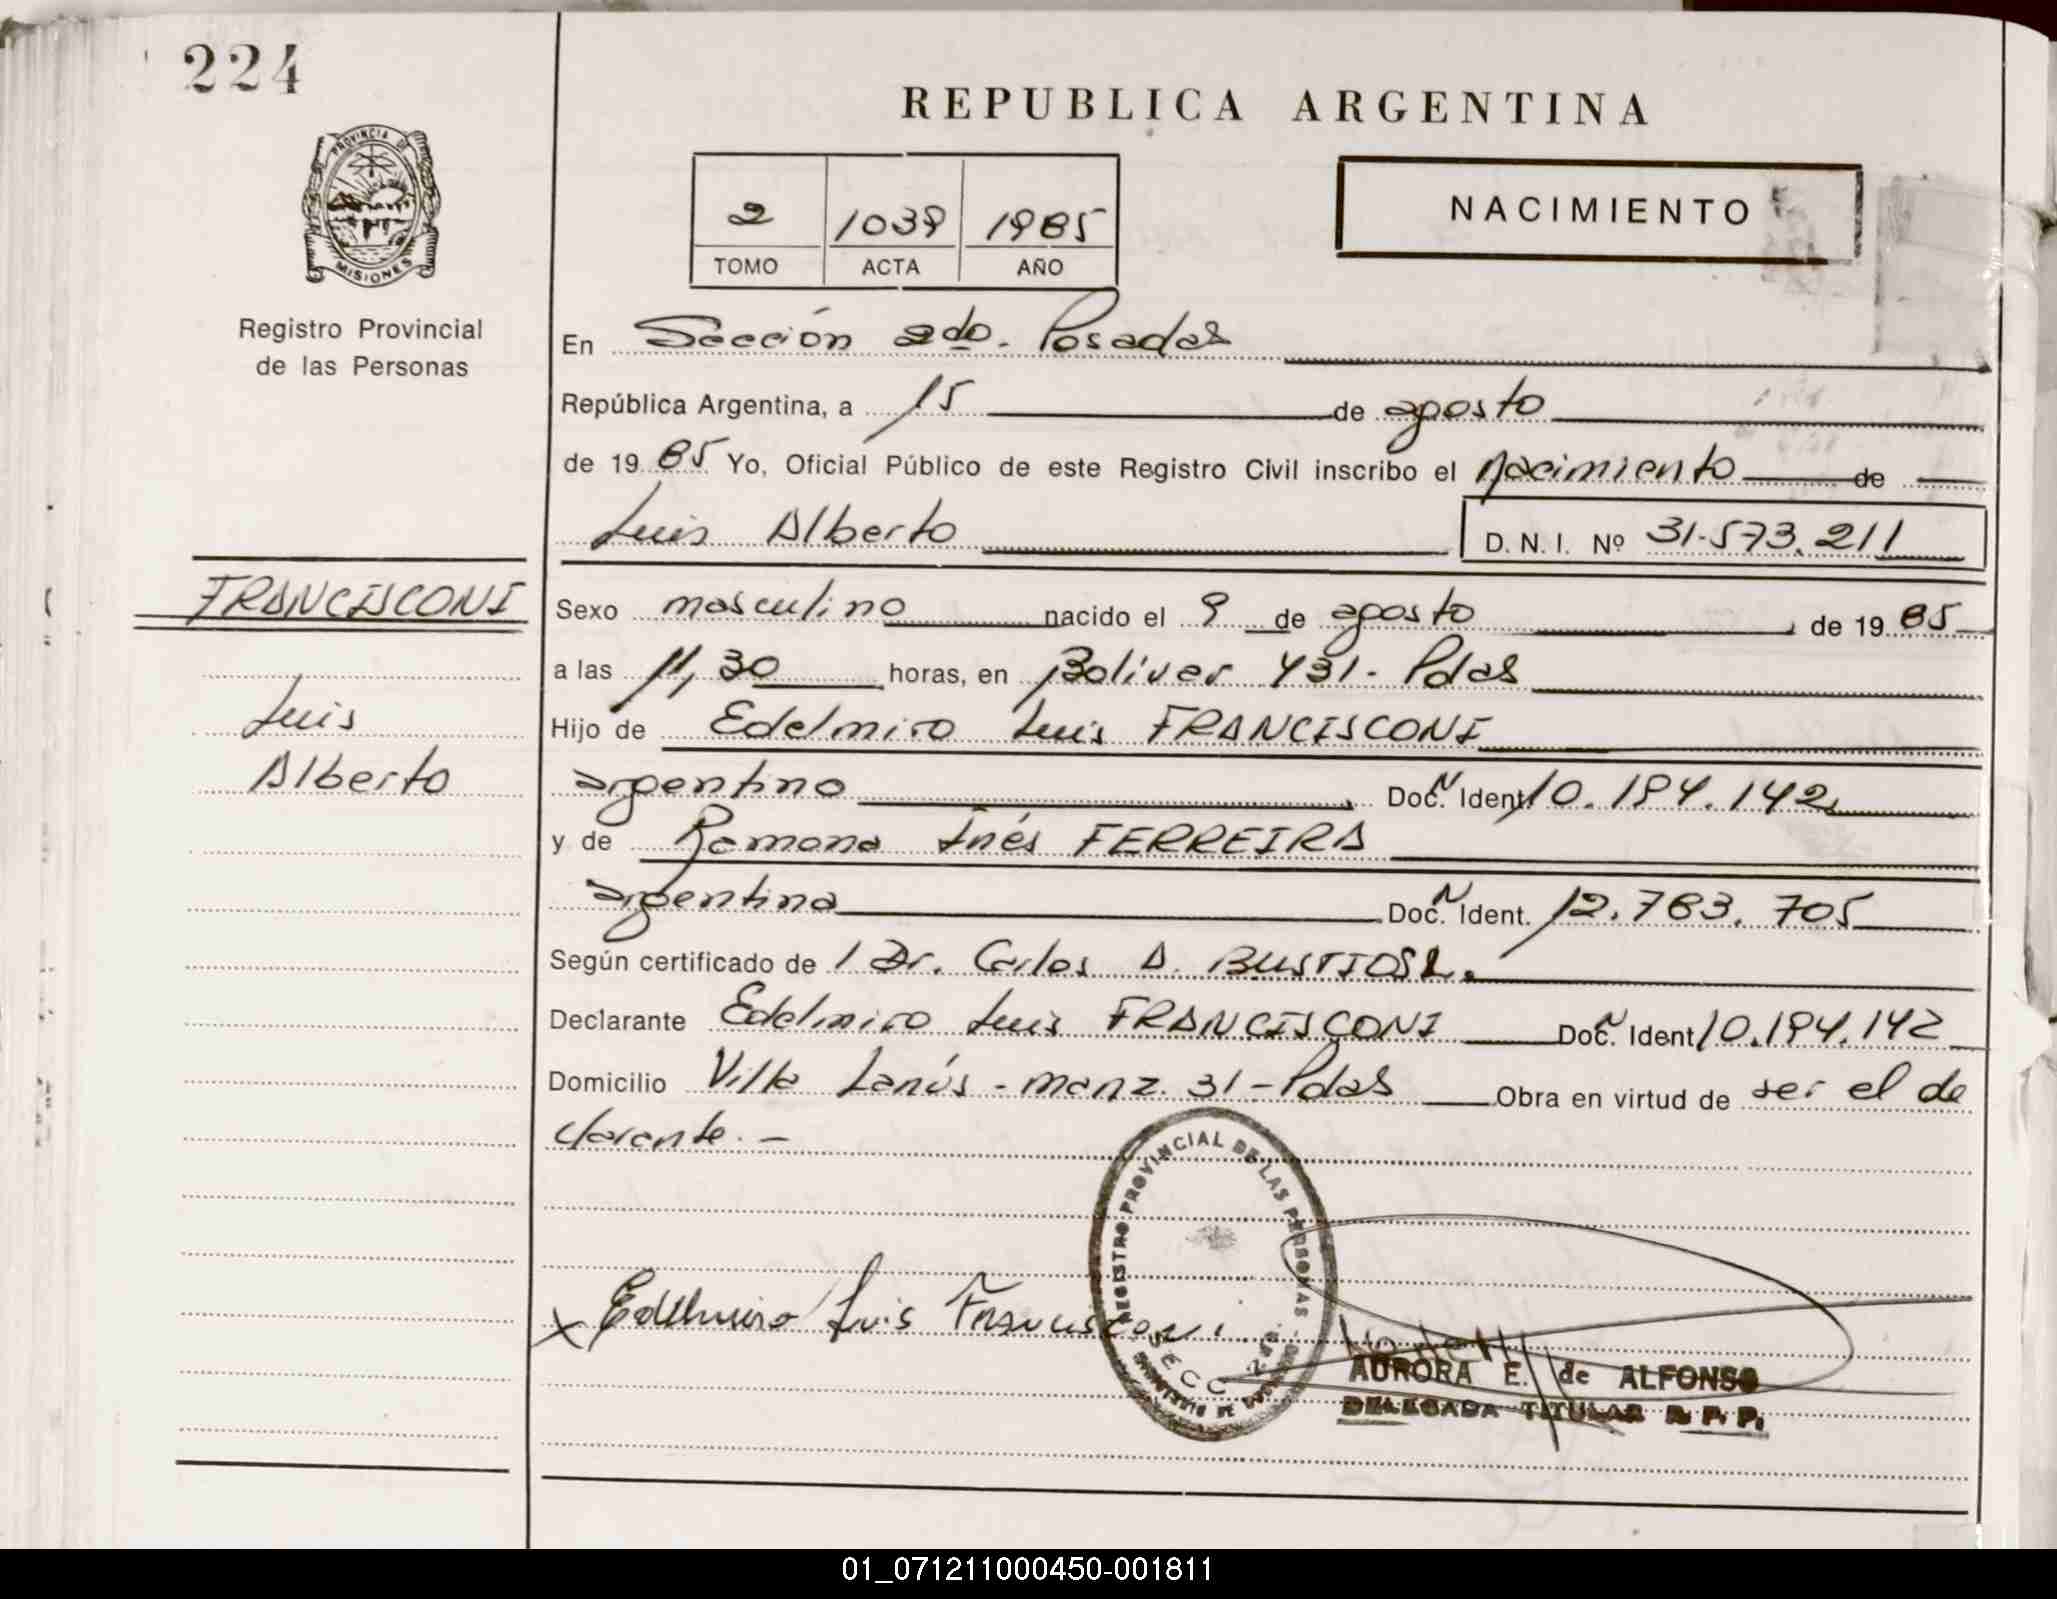 224
REPUBLICA ARGENTINA
PROVINCIA DE
MISIONES
Registro Provincial
de las Personas
2 1039 1985
TOMO ACTA AÑO
NACIMIENTO
En Sección 2do. Posadas
República Argentina, a 15 de agosto
de 1985 Yo, Oficial Público de este Registro Civil inscribo el nacimiento de
Luis Alberto D. N. I. Nº 31.573.211
FRANCISCONI
Sexo masculino nacido el 9 de agosto de 1985
a las 11,30 horas, en Bolivar 431 - Pdas
Luis
Hijo de Edelmiro Luis FRANCISCONI
Alberto
argentino Doc. N Ident. 10.194.142
y de Ramona Inés FERREIRA
argentina Doc. N Ident. 12.783.705
Según certificado de 1 Dr. Carlos A.
Declarante Edelmiro Luis FRANCISCONI Doc. N Ident. 10.194.142
Domicilio Villa Lanús - manz. 31 - Pdas Obra en virtud de ser el de
clarante. -
REGISTRO PROVINCIAL DE LAS PERSONAS
SECC. 2da.
x Edelmiro Luis Francisconi
AURORA E. de ALFONSO
DELEGADA TITULAR R. P. P.
01_071211000450-001811